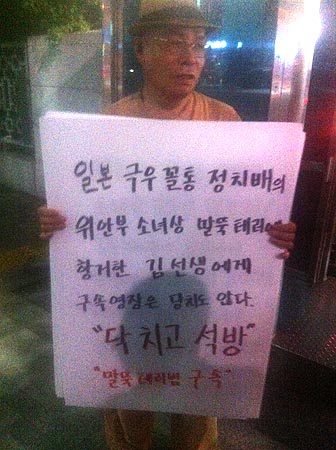 일본 극우 꼴통 정치배의
위안부 소녀상 말뚝 테러에
항거한 김선생에게
구속영장은 당치도 않다.
"닥치고 석방"
"말뚝 테러범 구속"